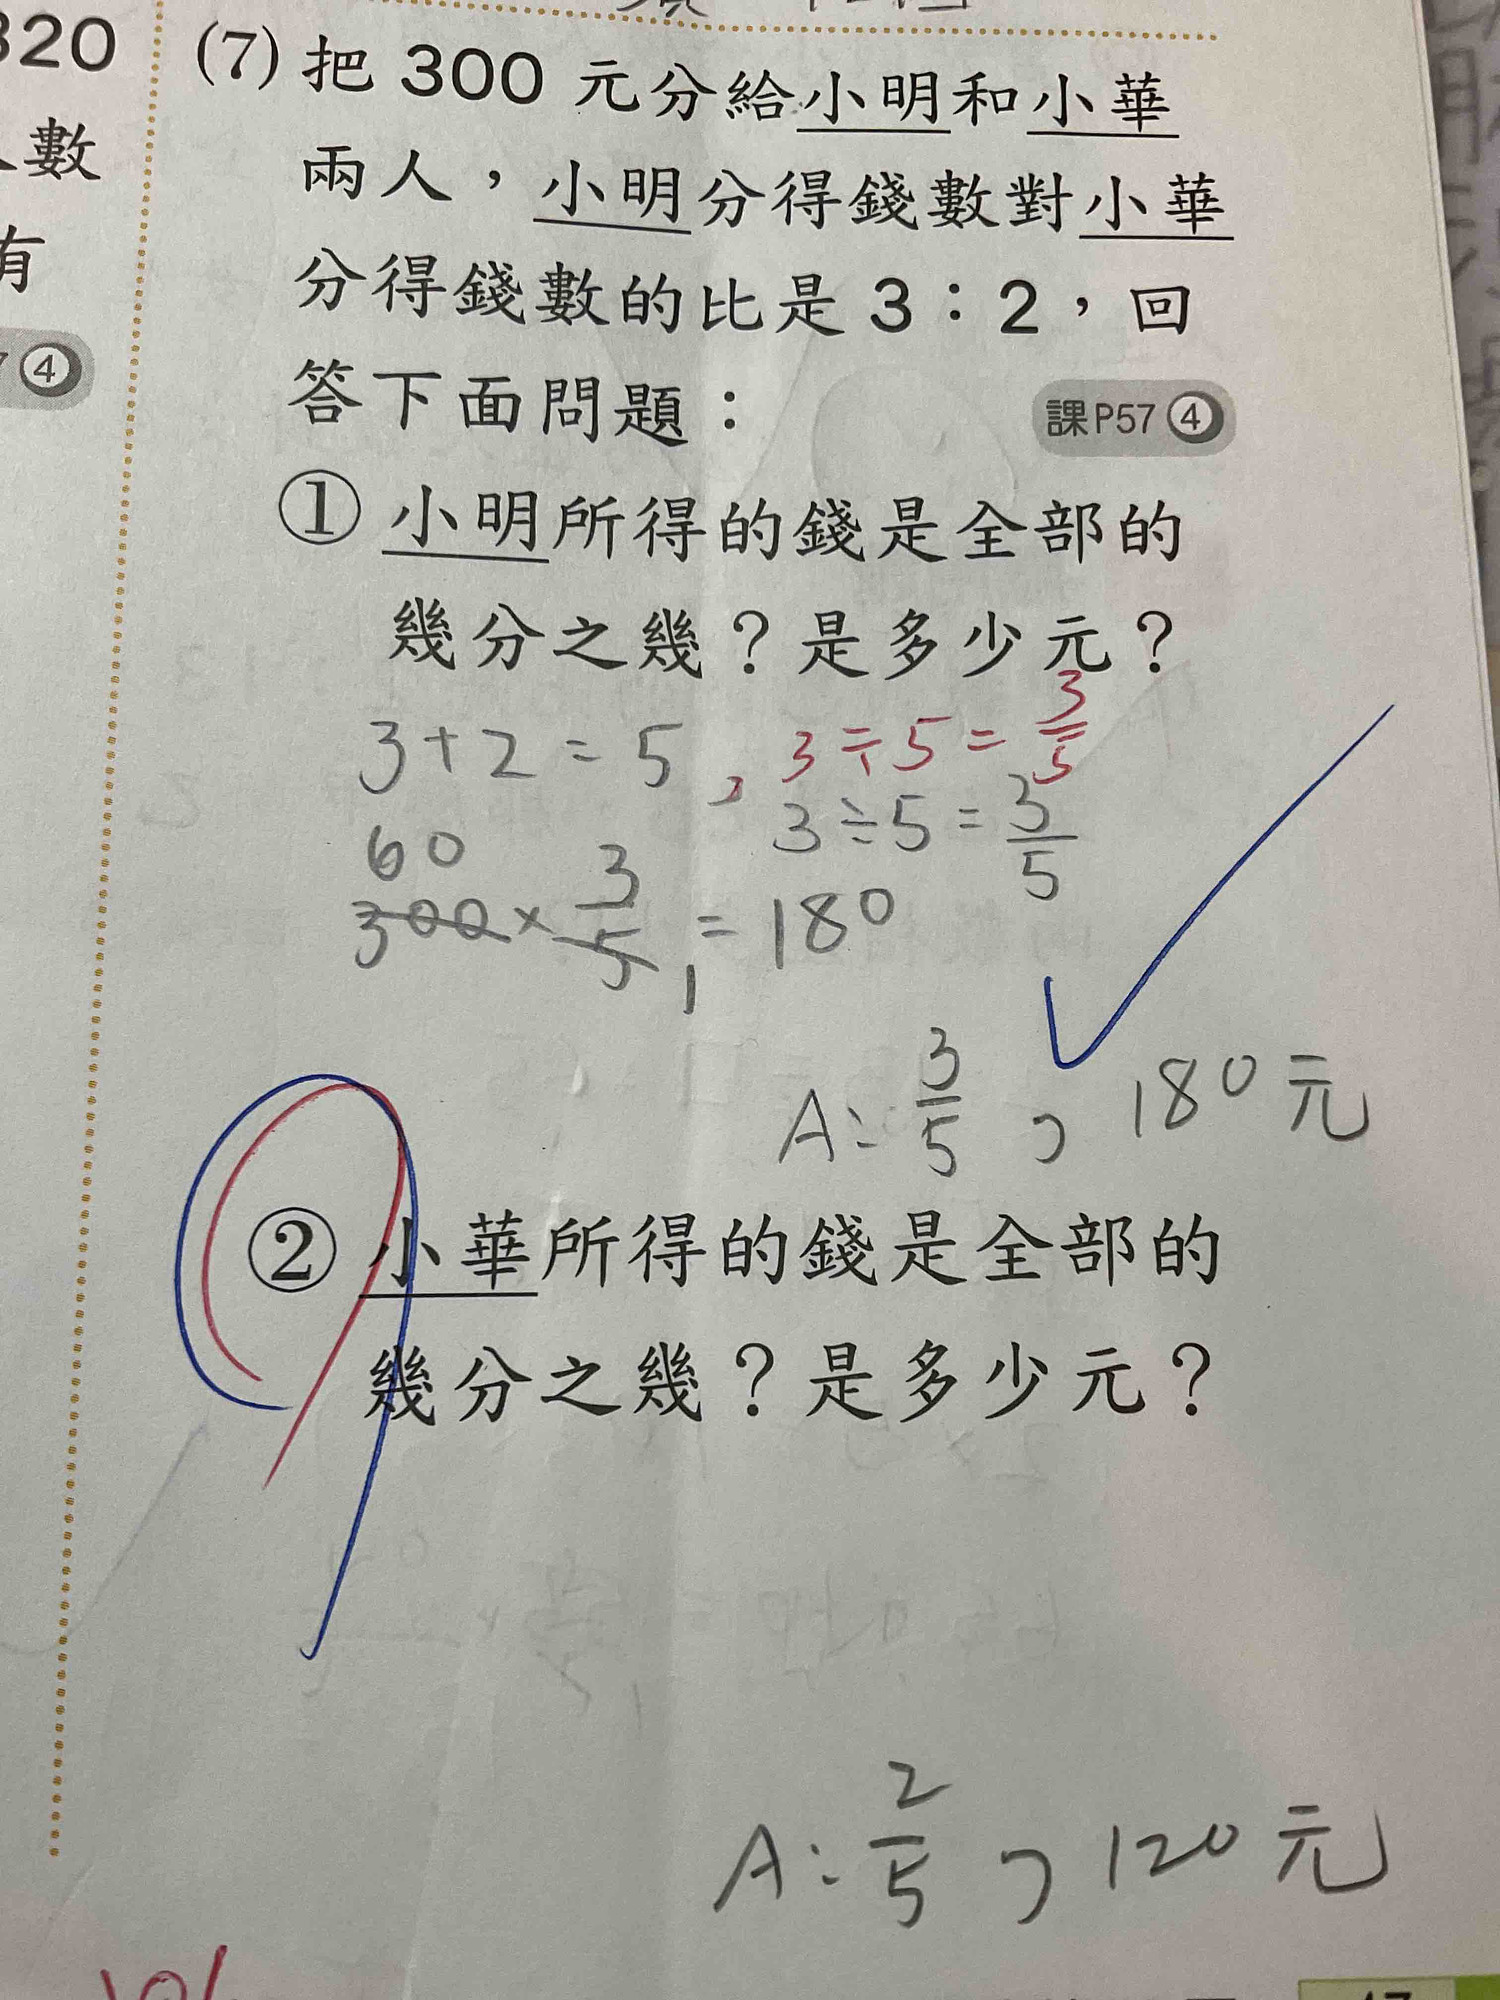 320
數
有
④
(7) 把 300 元分給小明和小華
兩人，小明分得錢數對小華
分得錢數的比是 3：2，回
答下面問題：
課P57 ④
① 小明所得的錢是全部的
幾分之幾？是多少元？
3+2=5, 3÷5=3/5
3÷5=3/5
60
300×3/5 1 =180
A: 3/5, 180元
② 小華所得的錢是全部的
幾分之幾？是多少元？
A: 2/5, 120元